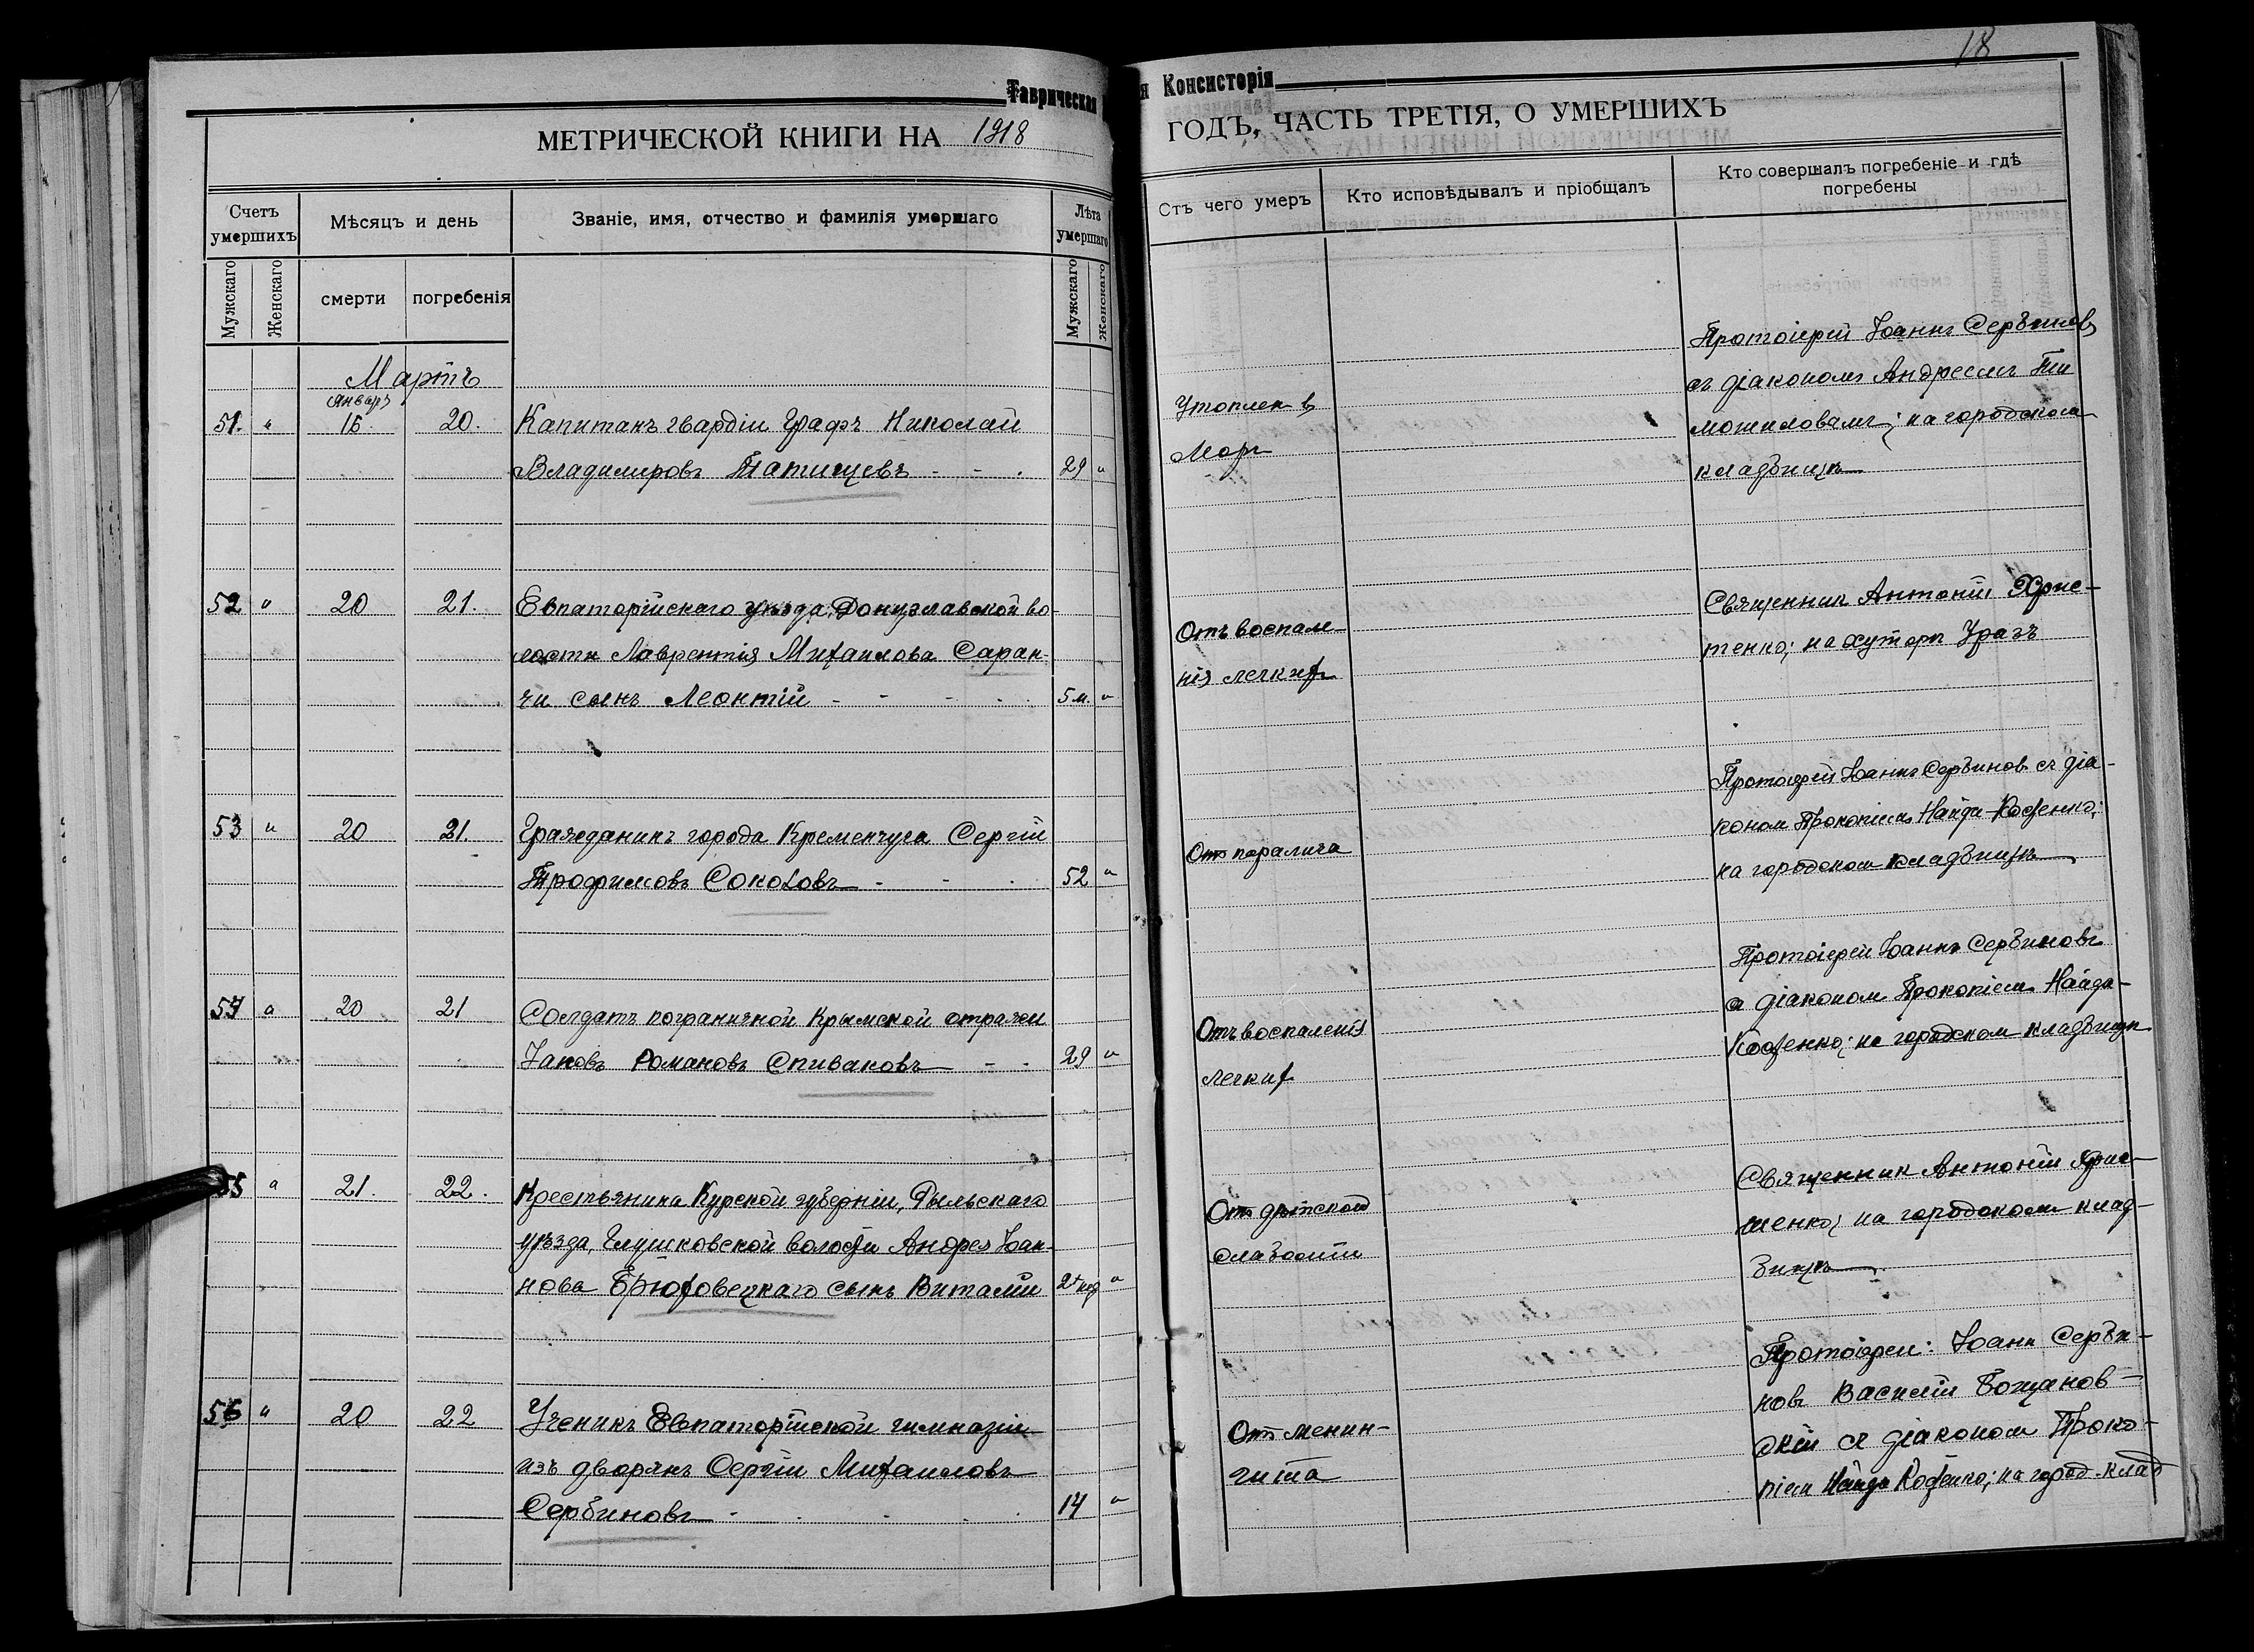 18
Таврическая
н Консисторія
МЕТРИЧЕСКОЙ КНИГИ НА 1918
ГОДЪ, ЧАСТЬ ТРЕТІЯ, О УМЕРШИХЪ
Счетъ умершихъ
Мѣсяцъ и день
Званіе, имя, отчество и фамилія умершаго
Лѣта умершаго
Отъ чего умеръ
Кто исповѣдывалъ и пріобщалъ
Кто совершалъ погребеніе и гдѣ погребены
Мужскаго
Женскаго
смерти
погребенія
Мужскаго
Женскаго
Мартъ
Январь
51. " 15 20. Капитанъ гвардіи Графъ Николай
Владимировъ Татищевъ 29 "
Утоплен въ
Морѣ
Протоіерей Іоаннъ Сербиновъ
съ діакономъ Андреемъ Ти
мошиловымъ; на городском
кладбищѣ
52 " 20 21. Евпаторійскаго уѣзда, Донузлавской во-
лости Лаврентія Михаилова Саран-
чи сынъ Леонтій 5 м. "
Отъ воспале
нія легкихъ
Священник Антоній Хрис-
тенко; на хуторѣ Уразъ
53 " 20 21. Гражданинъ города Кременчуга Сергій
Трофимовъ Соколовъ 52 "
Отъ паралича
Протоіерей Іоаннъ Сербинов съ діа-
коном Прокопіемъ Найда-Кофенко;
на городском кладбищѣ
54 " 20 21 Солдатъ пограничной Крымской стражи
Іаковъ Романовъ Спиваковъ 29 "
Отъ воспаленія
легких
Протоіерей Іоаннъ Сербиновъ
с діаконом Прокопіем Найда-
Кофенко; на городском кладбищѣ
55 " 21. 22. Крестьянина Курской губерніи, Рыльскаго
уѣзда, Глушковской волости Андрея Іоан-
нова Брюховецкаго сынъ Виталій 2 нед "
Отъ дѣтской
слабости
Священник Антоній Хрис-
тенко; на городском клад-
бищѣ
56 " 20 22 Ученикъ Евпаторійской гимназіи
изъ дворянъ Сергій Михаиловъ
Сербиновъ 14 "
Отъ менин-
гита
Протоіереи: Іоанн Серби-
новъ Василій Бощанов-
скій съ діаконом Проко-
піем Найда Кофенко; на город. клад